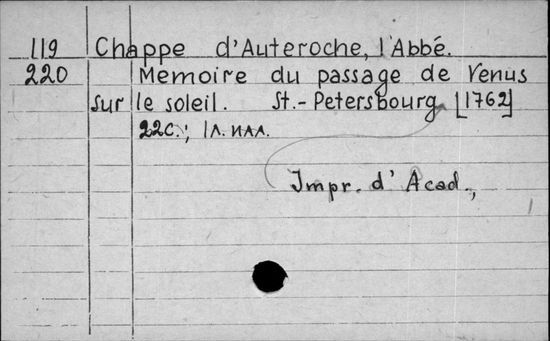 119 Chappe d'Auteroche, l'Abbé.
220 Memoire du passage de Venus
sur le soleil. St.-Petersbourg [1762]
22с.; 1л. илл.
Impr. d' Acad.,